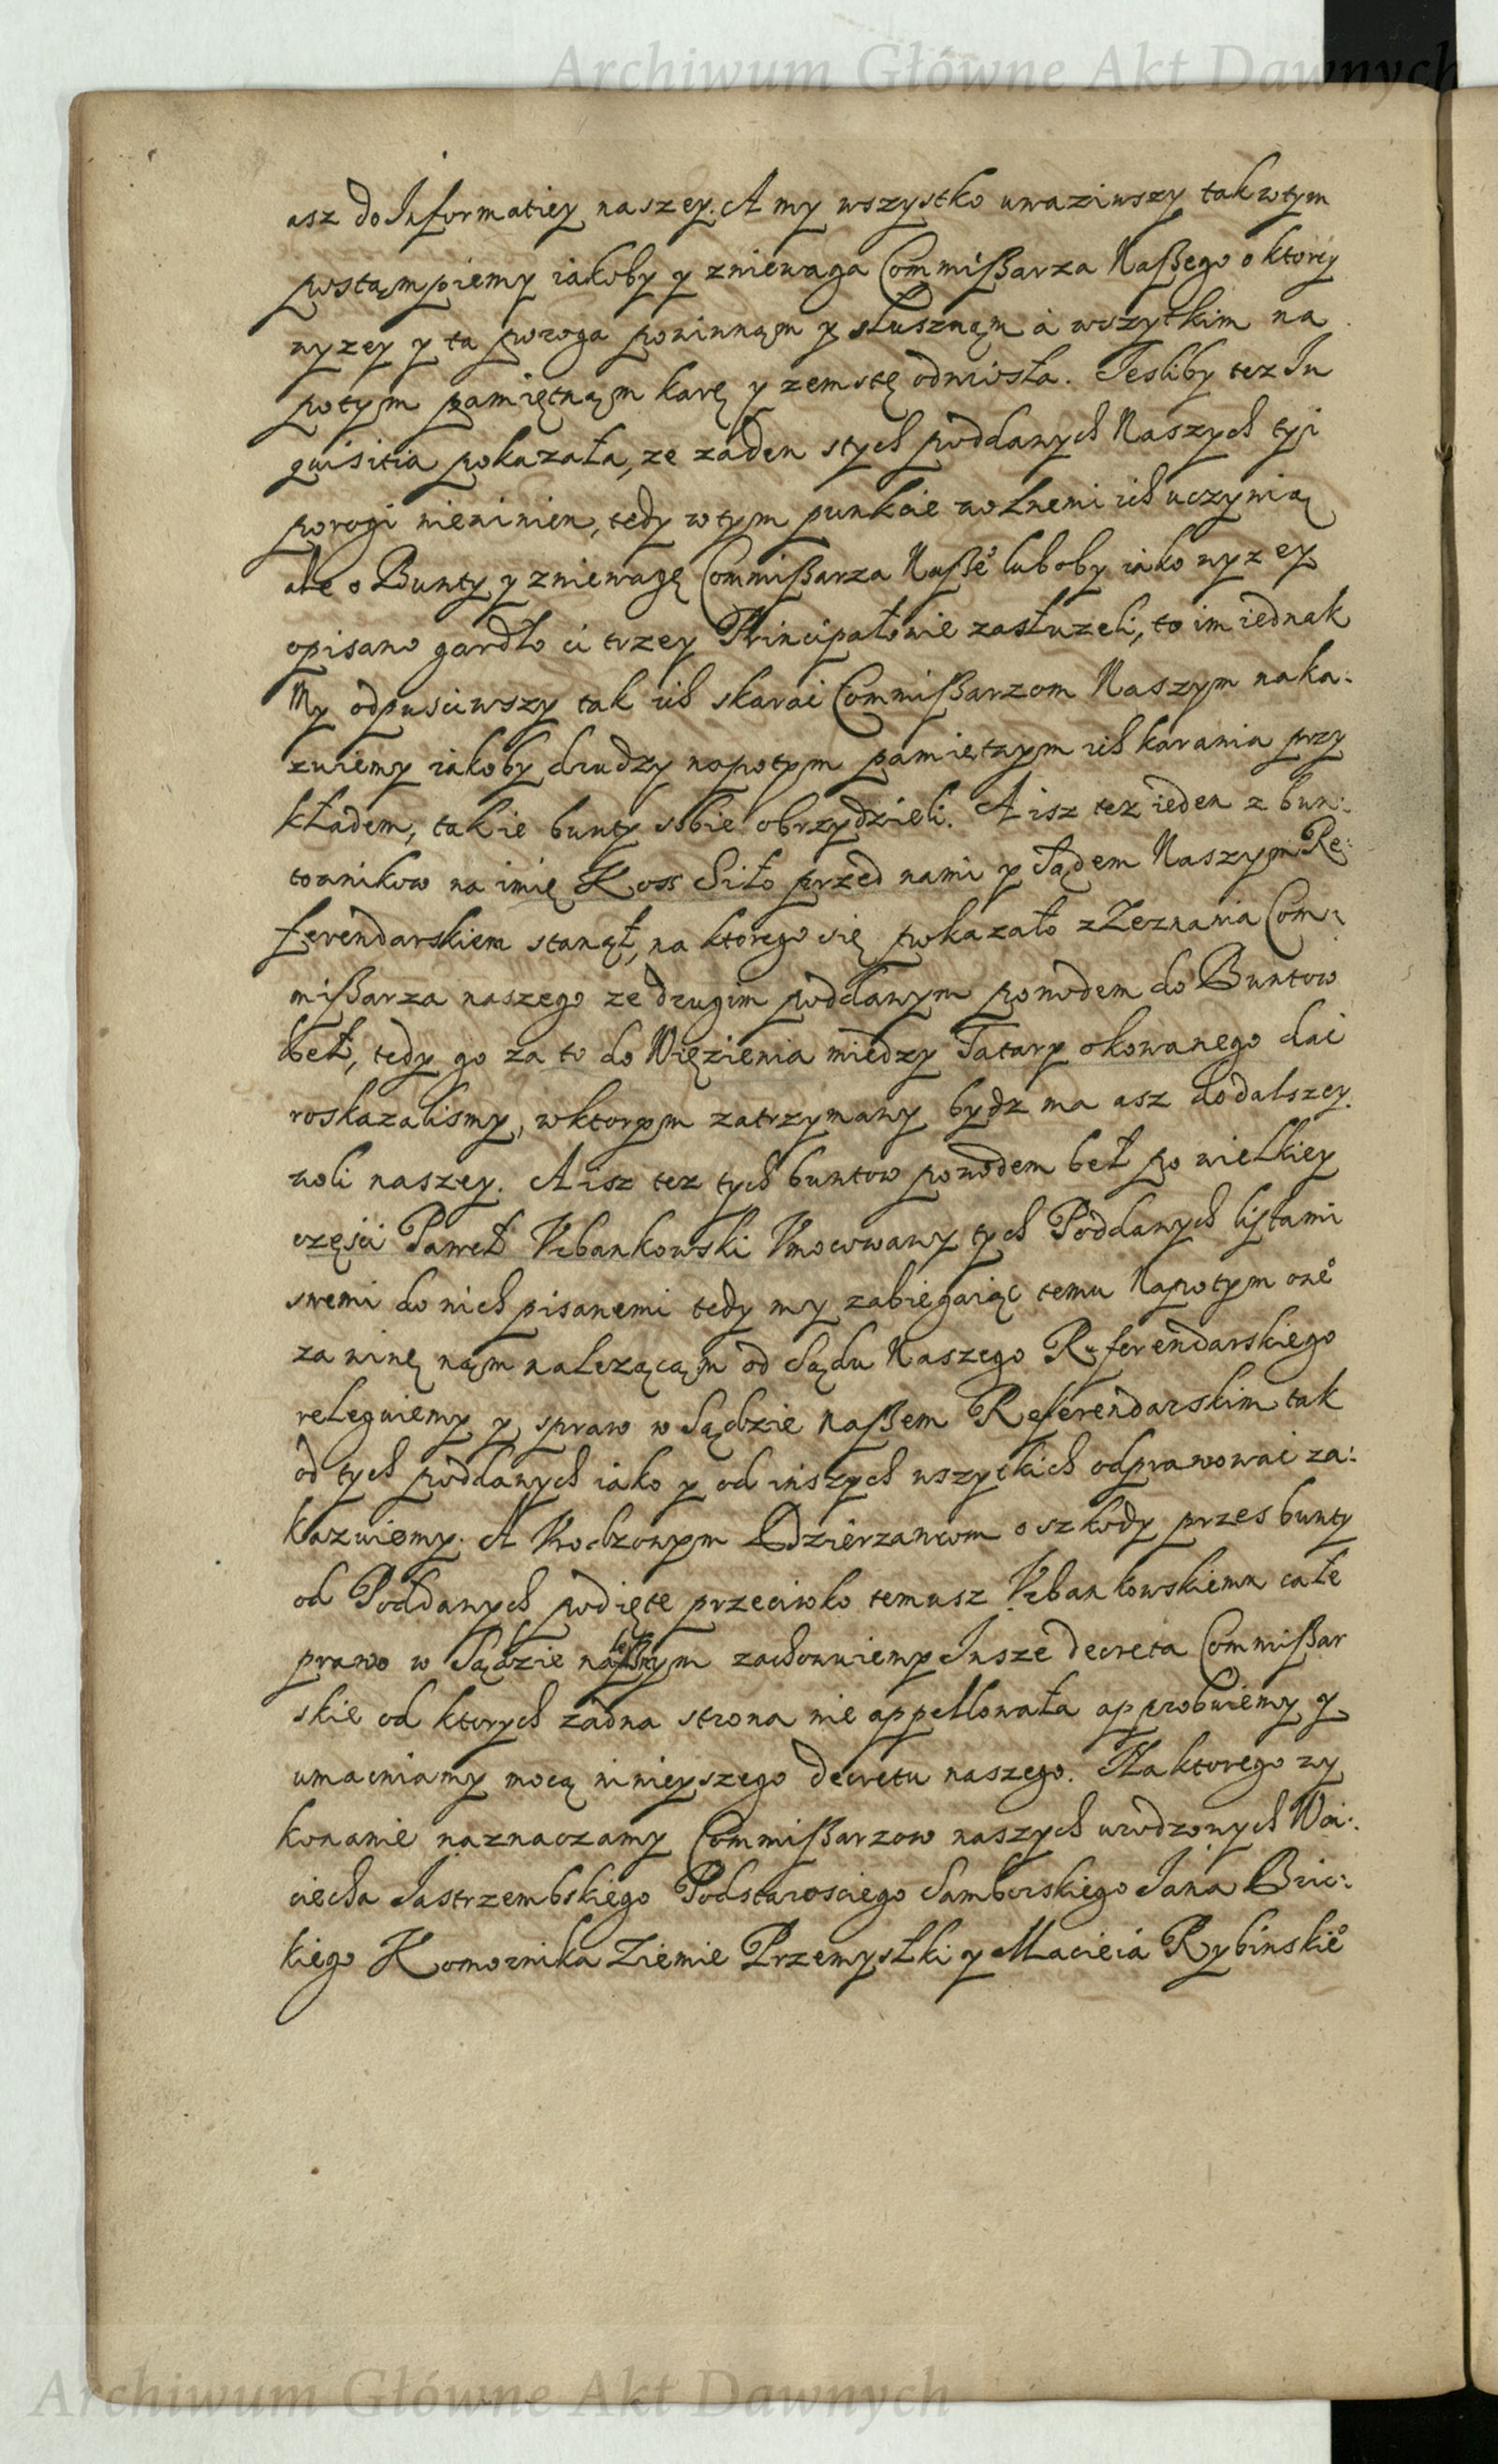 Archiwum Główne Akt Dawnych
asz do Informatiey naszey. A my wszystko uwaziwszy tak wtym
postąmpiemy iakoby y zniewaga Commißarza Naßego o ktorey
wyzey y ta pozoga powinnąm y słusznąm a wszytkim na
potym pamiętnąm karę y zemstę odniosła. Iesliby tez In
quisitia pokazała, ze zaden stych poddanych Naszych tyi
porogi niewinien, tedy wtym punkcie wolnemi ich uczynią
ale o Bunty y zniewagę Commißarza Naße° luboby iako wyzey
opisano gardło ci trzey Principałowie zasłuzeli, to im iednak
My odpusciwszy tak ich skarac Commißarzom Naszym naka:
zuiemy iakoby drudzy napotym pamiętnym ich karania przy
kładem, takie bunty sobie obrzydzieli. A isz tez ieden z bun:
townikow na imię Koss Siło przed nami y Sądem Naszym Re:
ferendarskiem stanął, na ktorego się pokazało z Zeznania Com:
mißarza naszego ze drugim poddanym powodem do Buntow
beł, tedy go za to do Więzienia miedzy Tatary okowanego dac
roskazalismy, wktorym zatrzymany bydz ma asz do dalszey
woli naszey. A isz tez tych buntow powodem beł po wielkiey
częsci Paweł Vrbankowski Vmocowany tych Poddanych listami
swemi do nich pisanemi tedy my zabiegaiąc temu Napotym one°
za winę nąm nalezącąm od Sądu Naszego Referendarskiego
releguiemy y spraw w Sądzie naßem Referendarskim tak
od tych poddanych iako y od inszych wszytkich odprawowac za:
kazuiemy. A Vrodzonym Dzierzawcom o szkody przes bunty
od Poddanych podięte przeciwko temusz Vrbankowskiemu całe
prawo w Sądzie nalęßnym zachowuiemy Insze decreta Commißar
skie od ktorych zadna strona nie appellowała approbuiemy y
umacniamy mocą ninieyszego decretu naszego. Na ktorego wy
konanie naznaczamy Commißarzow naszych urodzonych Woi:
ciecha Jastrzembskiego Podstarosciego Samborskiego Jana Bric:
kiego Komornika Ziemie Przemyskki y Macieia Rybinskie°
Archiwum Główne Akt Dawnych